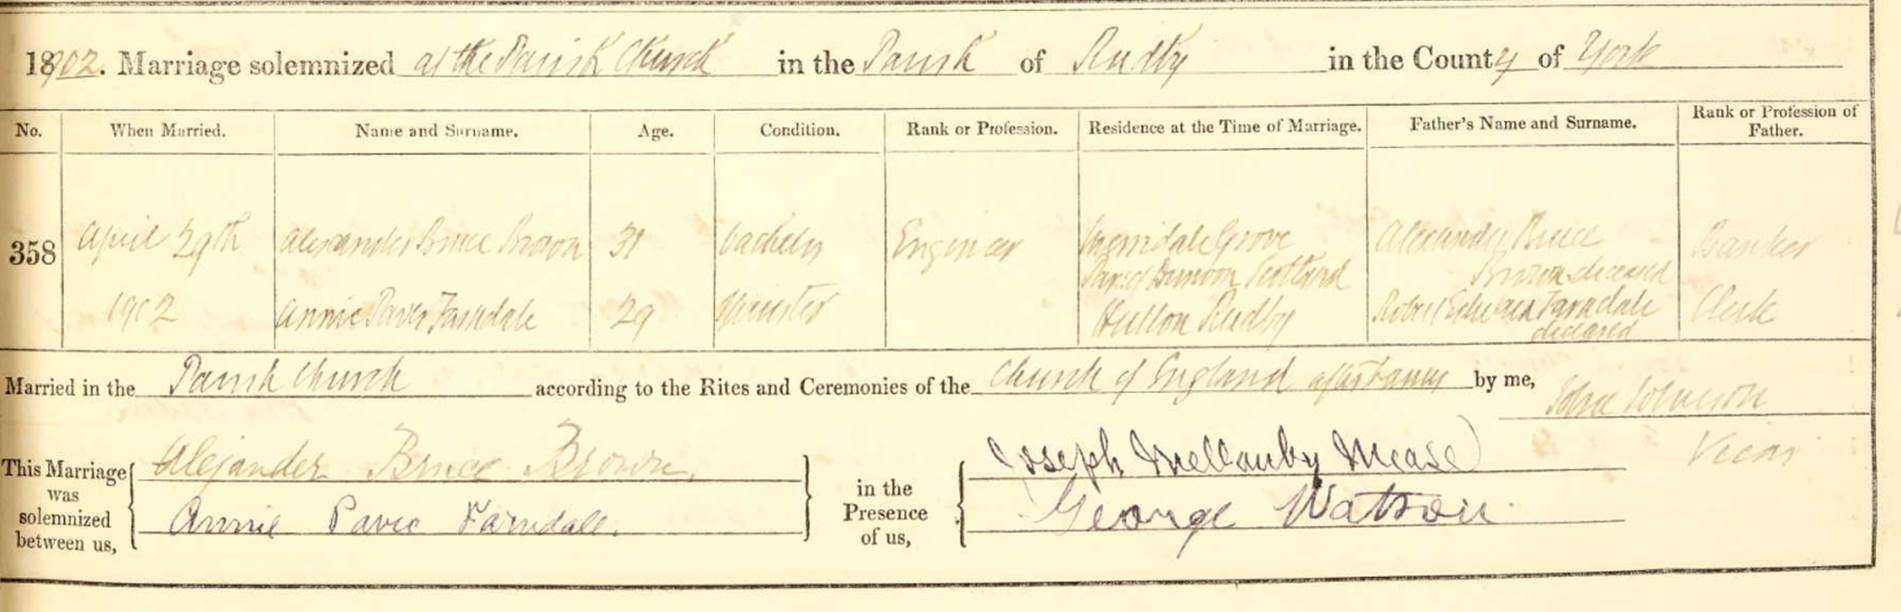 1902. Marriage solemnized at the Parish Church in the Parish of Rudby in the County of York
No. When Married. Name and Surname. Age. Condition. Rank or Profession. Residence at the Time of Marriage. Father's Name and Surname. Rank or Profession of Father.
358 April 29th Alexander Bruce Brown 31 Bachelor Engineer Grove Alexander Bruce Banker
Dunoon Scotland Brown deceased
1902 Annie Pavor Farndale 29 Spinster Hutton Rudby Robert Farndale Clerk
deceased
Married in the Parish Church according to the Rites and Ceremonies of the Church of England after Banns by me, John Johnson
Vicar
This Marriage was solemnized between us, Alexander Bruce Brown. in the Presence of us, Joseph Mellanby Mease
Annie Pavor Farndale. George Watson